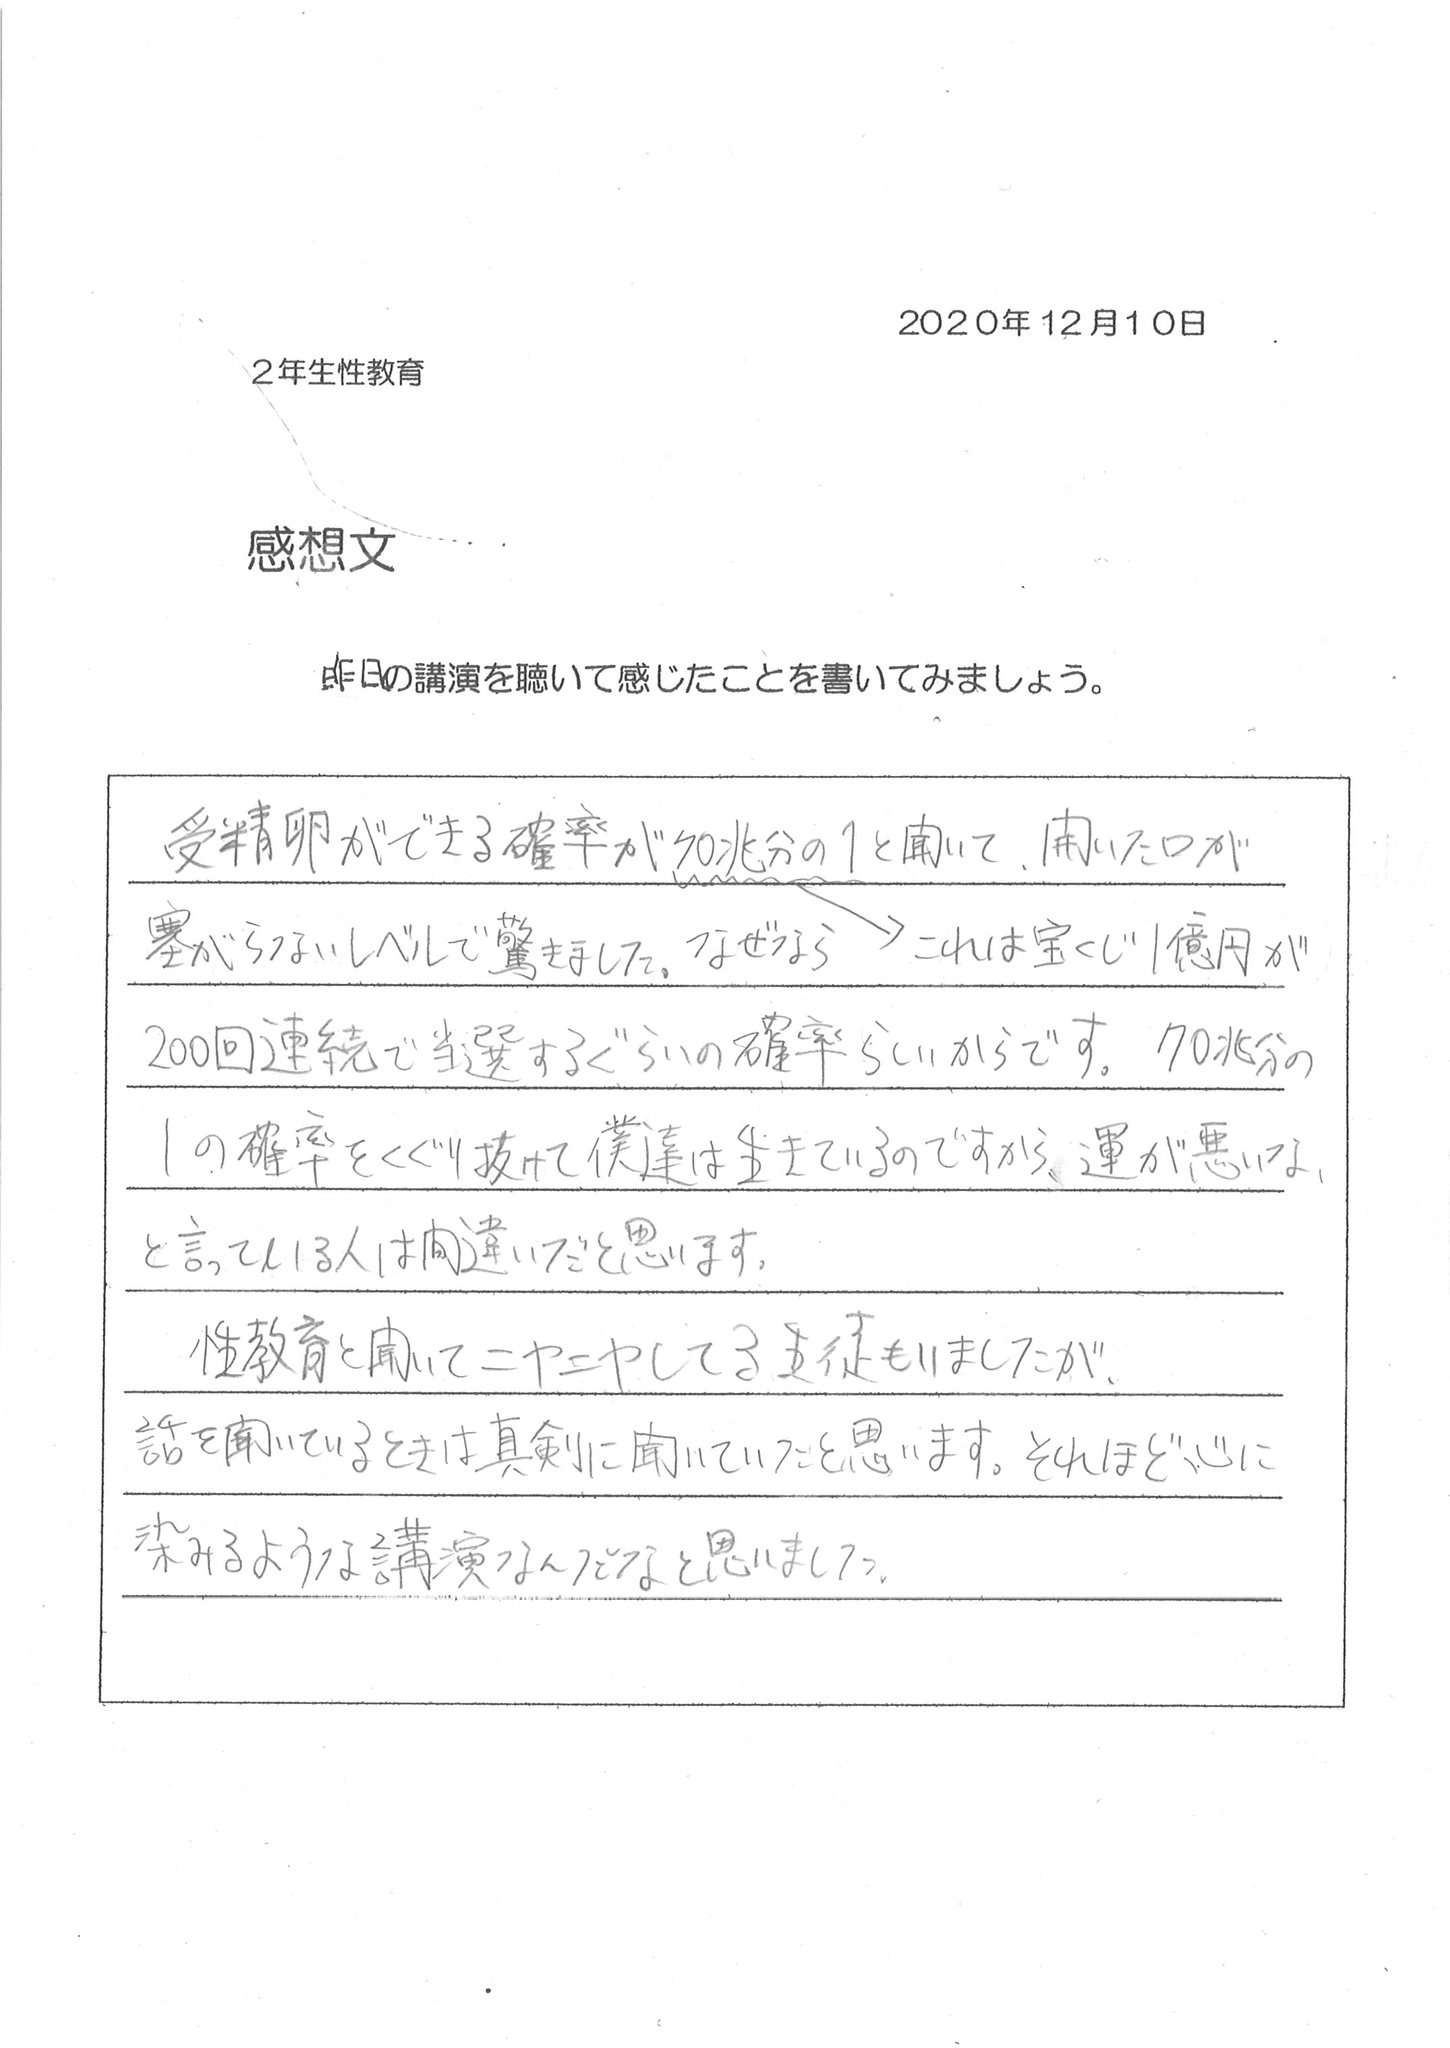 2020年12月10日
2年生性教育
感想文
昨日の講演を聴いて感じたことを書いてみましょう。
受精卵ができる確率が70兆分の1と聞いて、開いた口が
塞がらないレベルで驚きました。なぜなら→これは宝くじ1億円が
200回連続で当選するぐらいの確率らしいからです。70兆分の
1の確率をくぐり抜けて僕達は生きているのですから、運が悪いな、
と言っている人は間違いだと思います。
性教育と聞いてニヤニヤしてる生徒もいましたが、
話を聞いているときは真剣に聞いていたと思います。それほど、心に
染みるような講演なんだなと思いました。